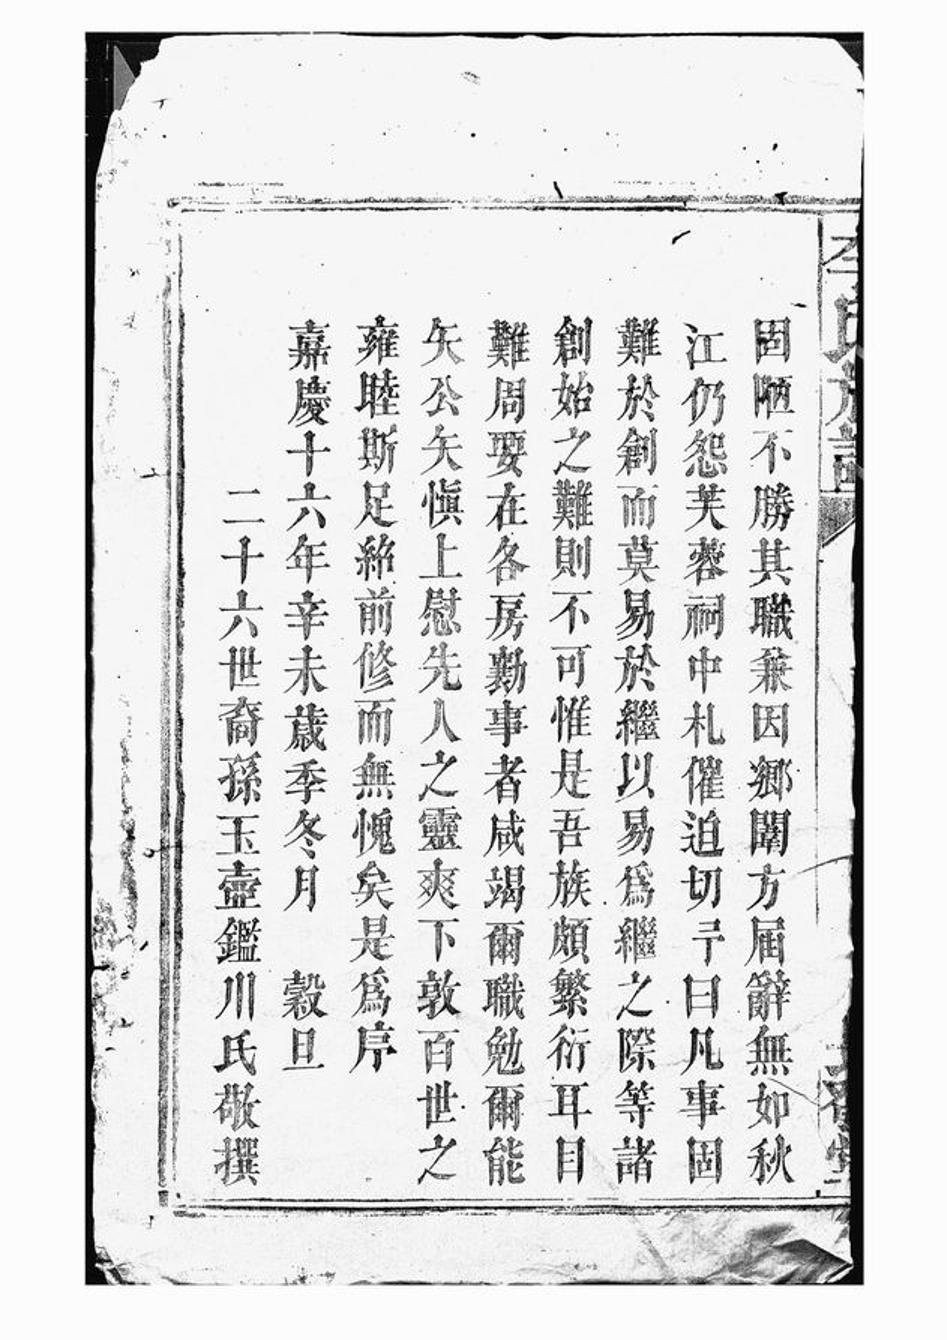 李氏族譜
固陋不勝其職兼因鄉闈方届辭無如秋
江仍怨芙蓉祠中札催迫切予曰凡事固
難於創而莫易於繼以易爲繼之際等諸
創始之難則不可惟是吾族頗繁衍耳目
難周要在各房勷事者咸竭爾職勉爾能
矢公矢慎上慰先人之靈爽下敦百世之
雍睦斯足紹前修而無愧矣是爲序
嘉慶十六年辛未歲季冬月　榖旦
二十六世裔孫玉壺鑑川氏敬撰